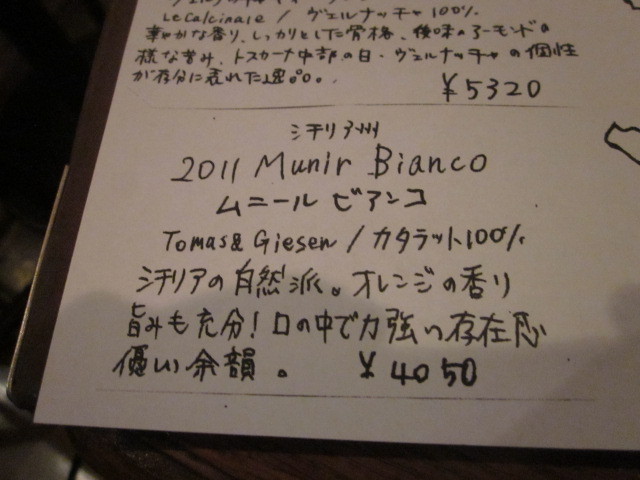 LeCalcinaie / ヴェルナッチャ 100%
華やかな香り、しっかりとした骨格、後味のアーモンドの
様な苦み、トスカーナ中部の白・ヴェルナッチャの個性
が存分に表れた逸品。
¥5320
シチリア州
2011 Munir Bianco
ムニール ビアンコ
Tomas& Giesen / カタラット100%
シチリアの自然派。オレンジの香り
旨みも充分! 口の中で力強い存在感
優しい余韻。 ¥4050